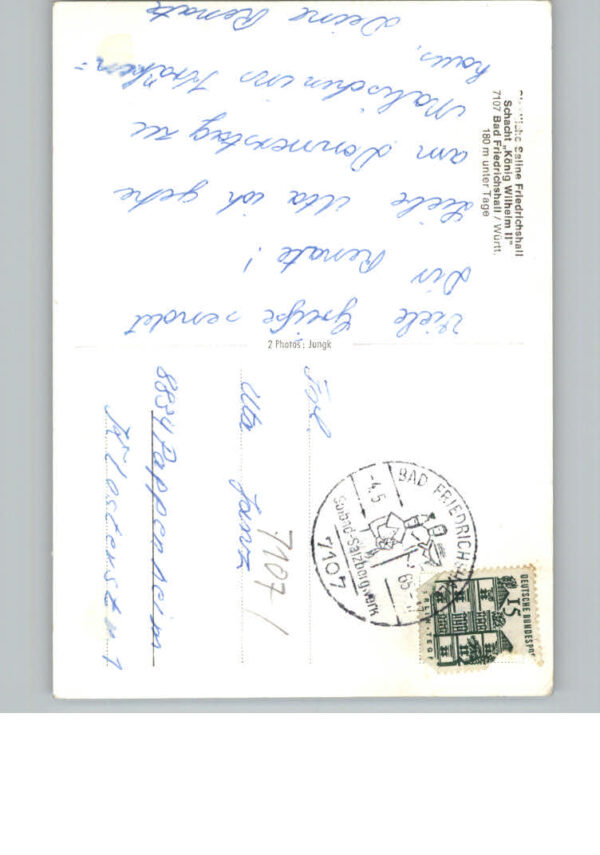 Staatliche Saline Friedrichshall
Schacht „König Wilhelm II"
7107 Bad Friedrichshall / Württ.
180 m unter Tage
Viele Grüße sendet
Dir Renate!
Liebe Uta ich gehe
am Donnerstag zu
ins Kranken=
haus,
Deine Renate
2 Photos: Jungk
Frl.
Uta
8834 Pappenheim
Klosterstr 1
7107/
BAD FRIEDRICHSHALL
-4.5
65-
Solbad-Salzbergwerk
7107
DEUTSCHE BUNDESPOST
15
BERLIN-TEGEL